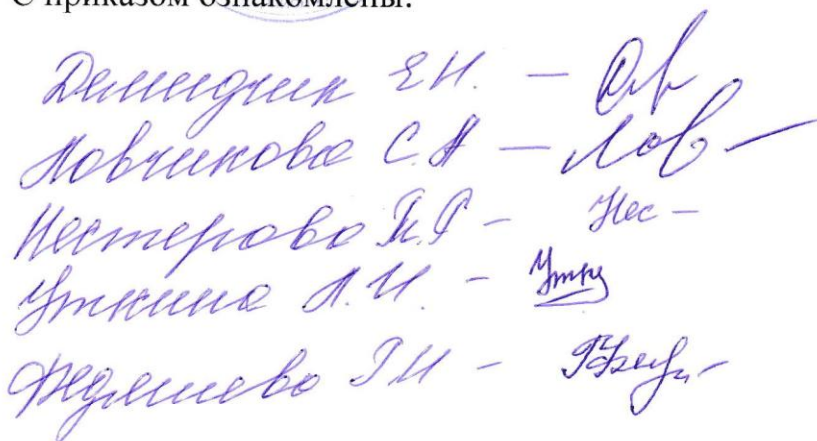 С приказом ознакомлены:
Демидчик Е.Н. —
Ловчикова С.А — Лов —
Нестерова Т.Г — Нес —
Уткина Л.И. — Утки
Федяшева Г И —